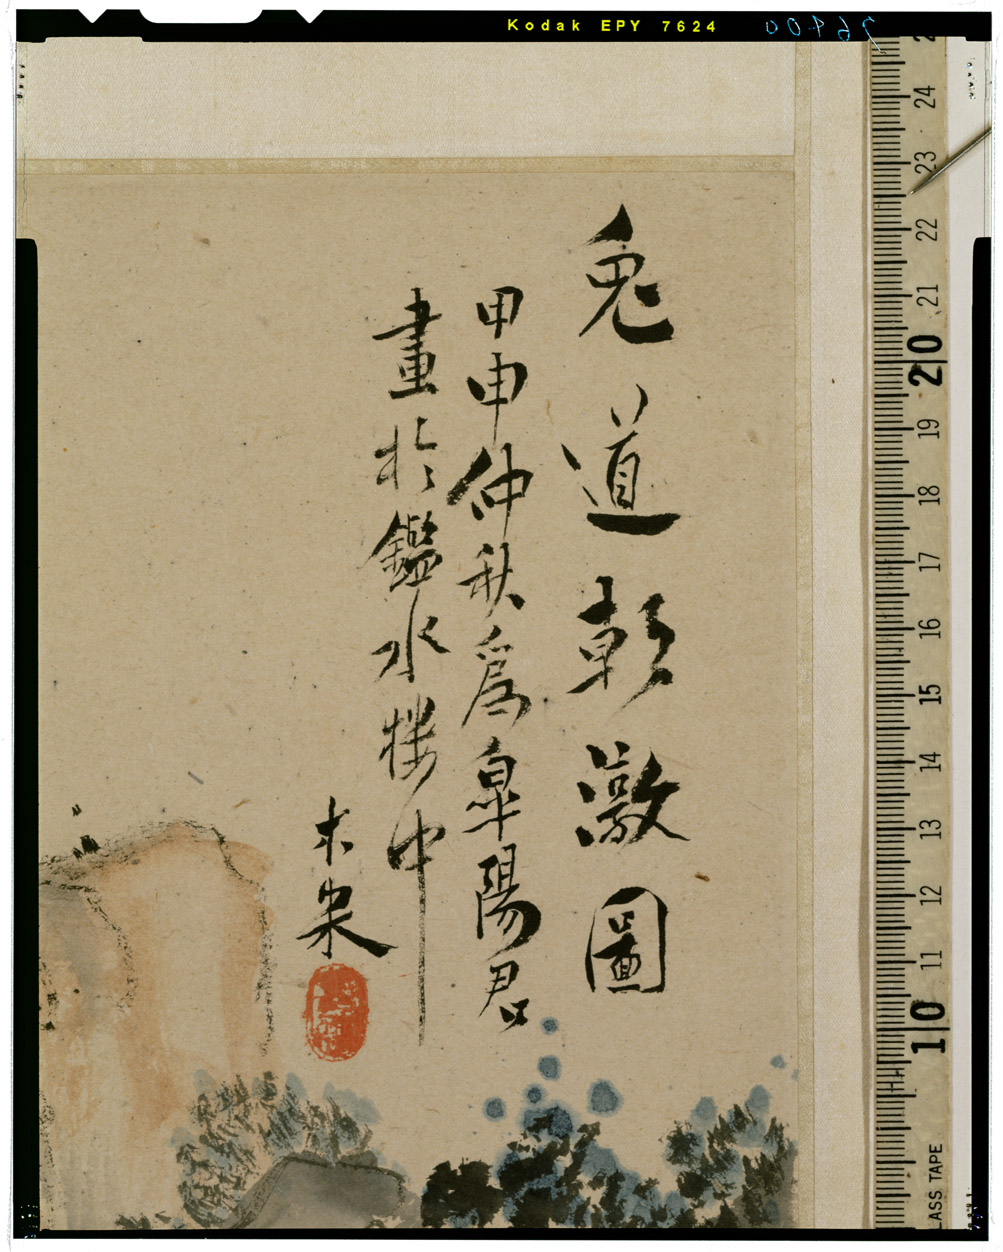 Kodak EPY 7624
兎道朝潋圖
甲申仲秋爲皐陽君
畫於鑑水楼中
木米
24
23
22
21
20
19
18
17
16
15
14
13
12
11
10
LASS TAPE